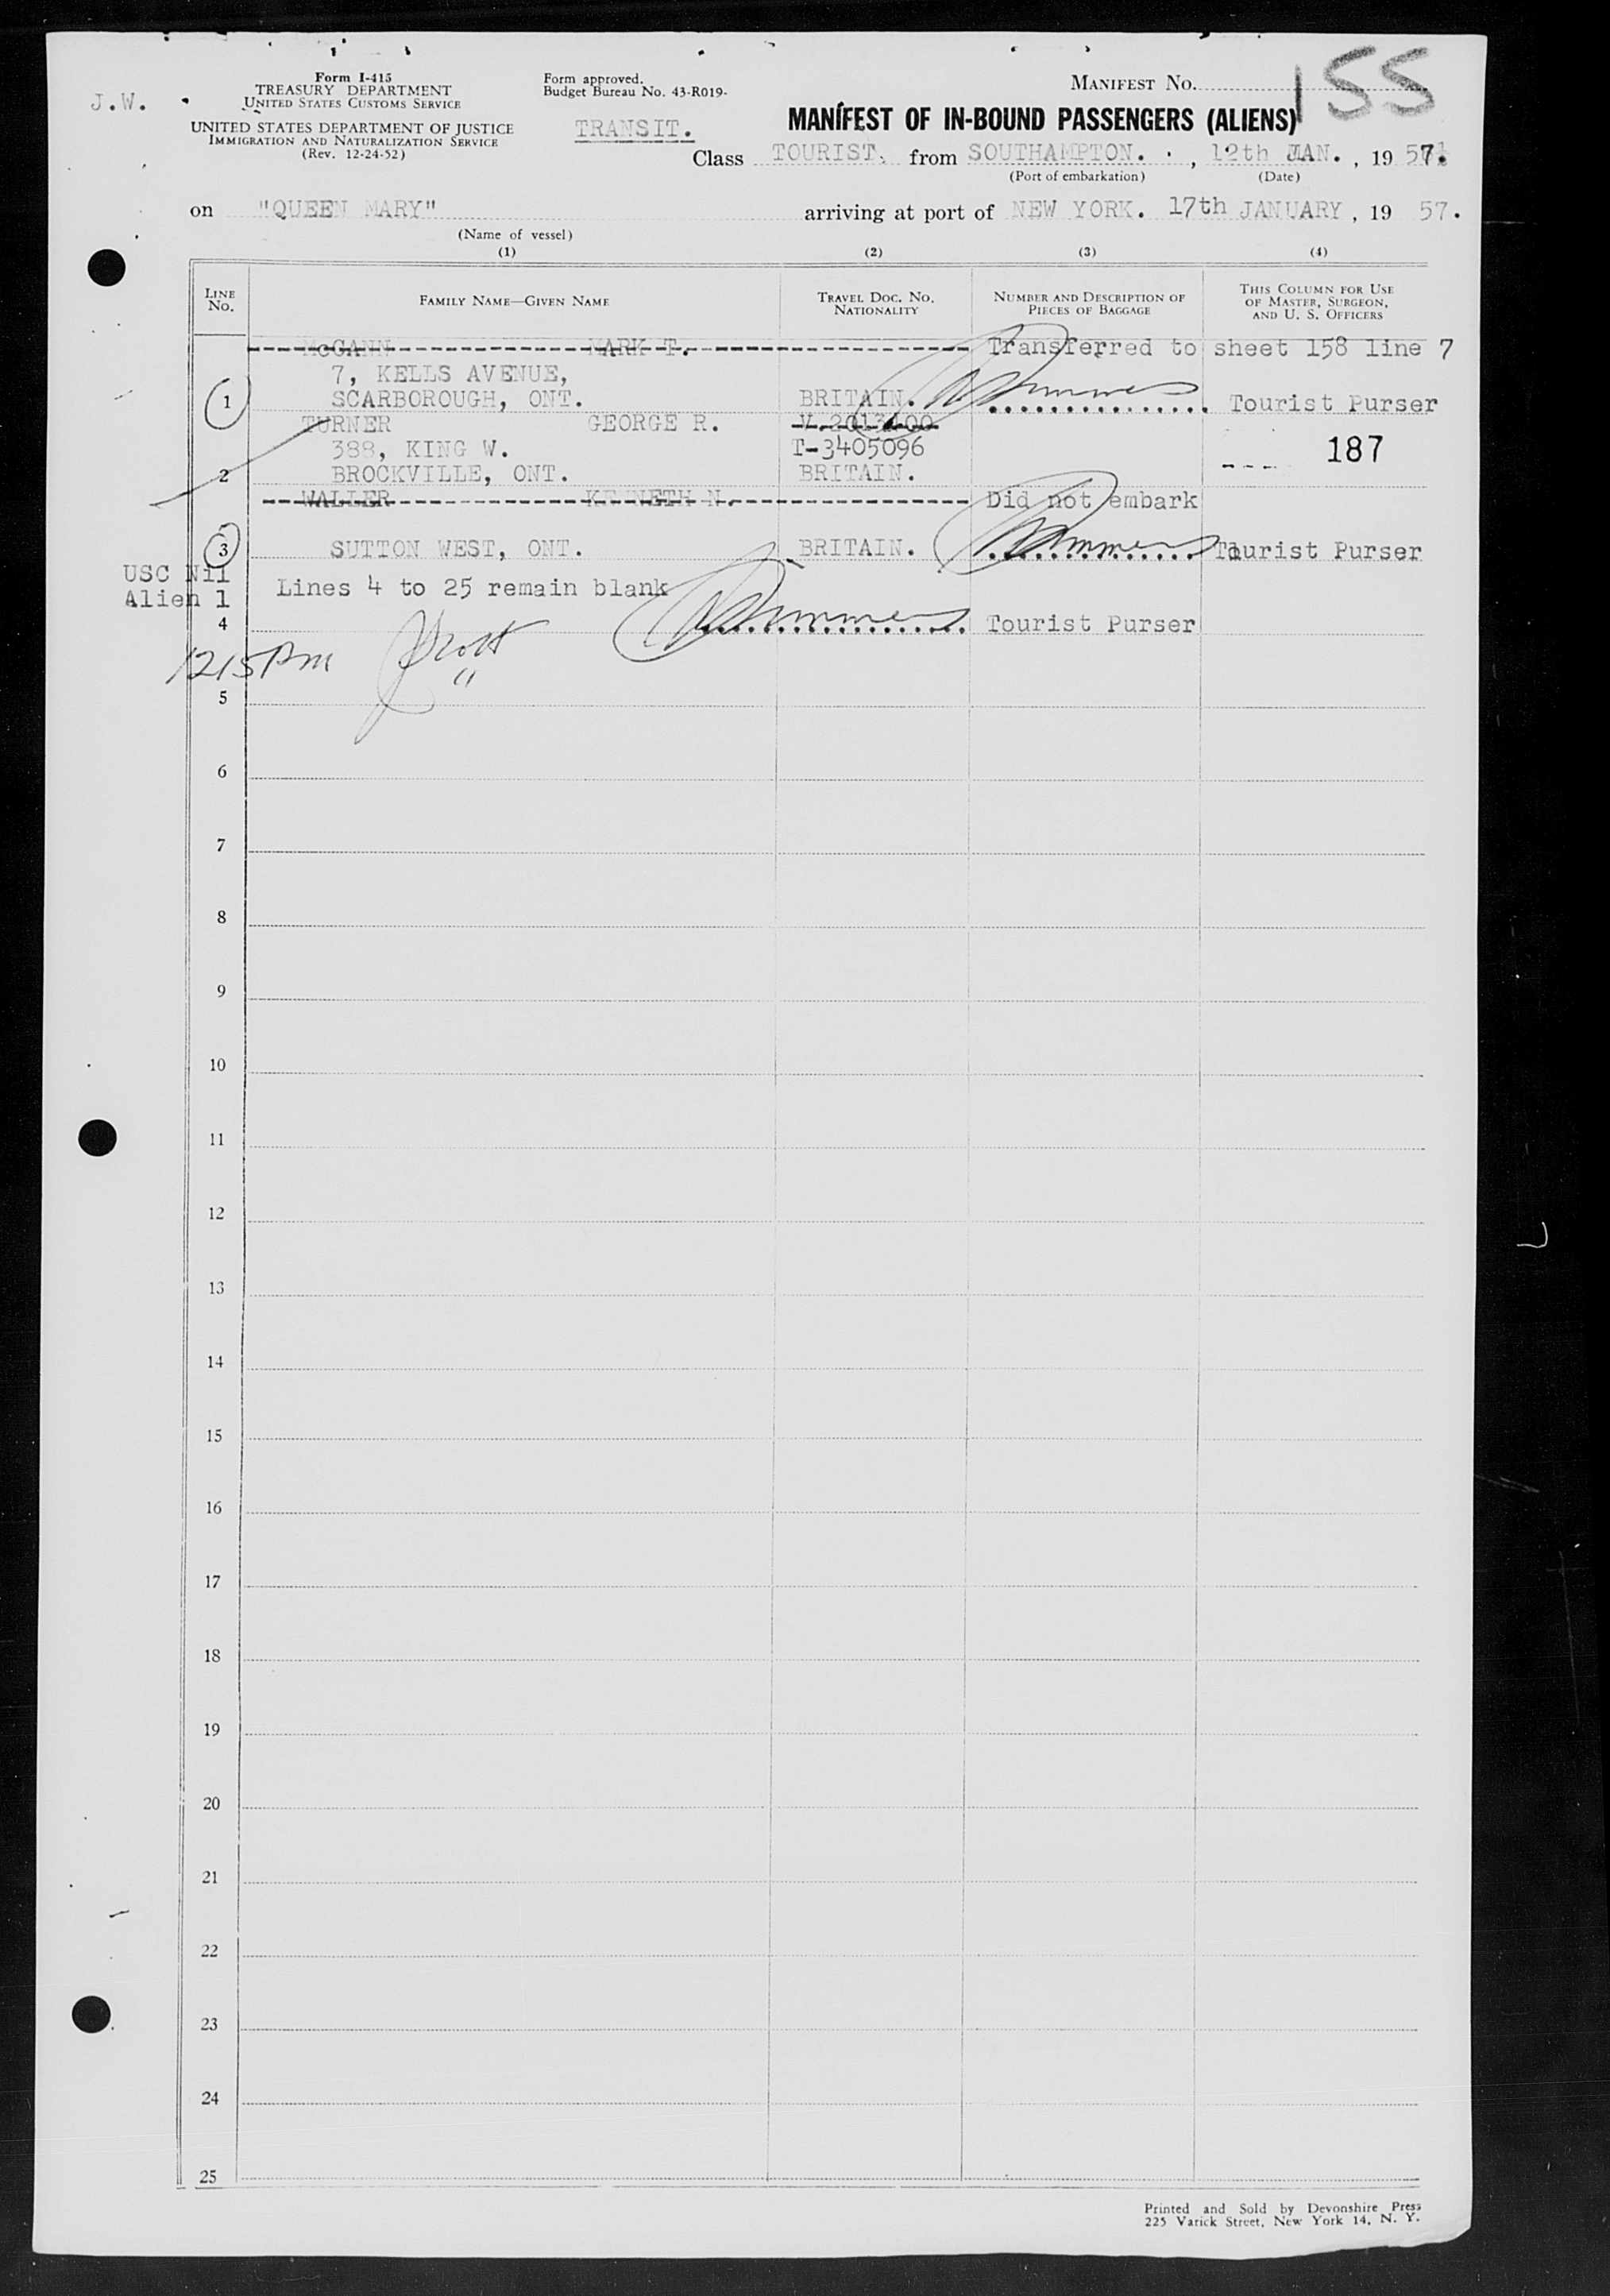 J.W.
Form I-415
TREASURY DEPARTMENT
UNITED STATES CUSTOMS SERVICE
UNITED STATES DEPARTMENT OF JUSTICE
IMMIGRATION AND NATURALIZATION SERVICE
(Rev. 12-24-52)
Form approved.
Budget Bureau No. 43-R019-
TRANSIT.
MANIFEST NO. 155
MANIFEST OF IN-BOUND PASSENGERS (ALIENS)
Class TOURIST. from SOUTHAMPTON. , 12th JAN. , 19 57.
(Port of embarkation) (Date)
on "QUEEN MARY" arriving at port of NEW YORK. 17th JANUARY , 19 57.
(Name of vessel)
(1) (2) (3) (4)
LINE NO.
FAMILY NAME—GIVEN NAME
TRAVEL DOC. NO. NATIONALITY
NUMBER AND DESCRIPTION OF PIECES OF BAGGAGE
THIS COLUMN FOR USE OF MASTER, SURGEON, AND U. S. OFFICERS
McGANN MARK T. Transferred to sheet 158 line 7
7, KELLS AVENUE,
1 SCARBOROUGH, ONT. BRITAIN. Tourist Purser
TURNER GEORGE R. V.2013400
388, KING W. T-3405096 187
2 BROCKVILLE, ONT. BRITAIN.
WALLER KENNETH N. Did not embark
3 SUTTON WEST, ONT. BRITAIN. Tourist Purser
USC Nil
Lines 4 to 25 remain blank
Alien 1
4 Tourist Purser
1215 PM
5
6
7
8
9
10
11
12
13
14
15
16
17
18
19
20
21
22
23
24
25
Printed and Sold by Devonshire Press
225 Varick Street, New York 14, N. Y.